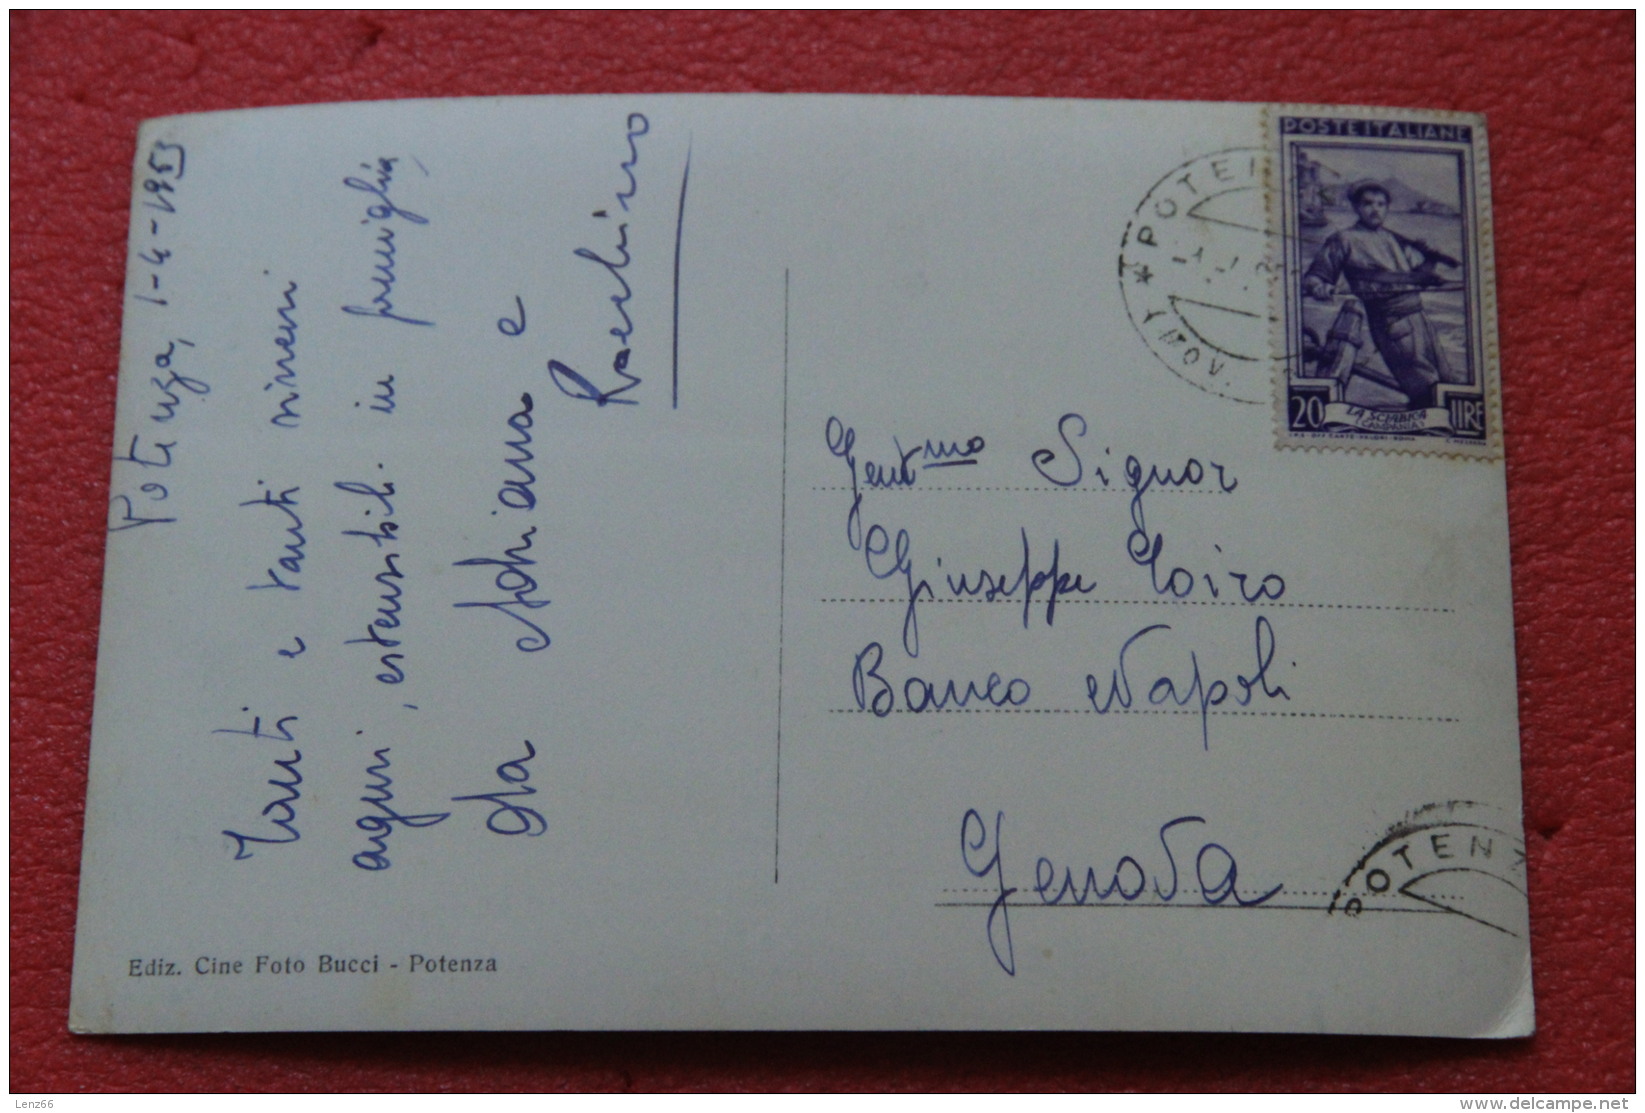 Potenza, 1-4-1953
Tanti e tanti sinceri
aguri, estensibili in famiglia,
da Adriana e
Gent.mo Signor
Giuseppe Loiro
Banco Napoli
Genova
Ediz. Cine Foto Bucci - Potenza
POSTE ITALIANE
20 LIRE
LA SCIABICA
(CAMPANIA)
POTENZ
Lenz66
www.delcampe.net